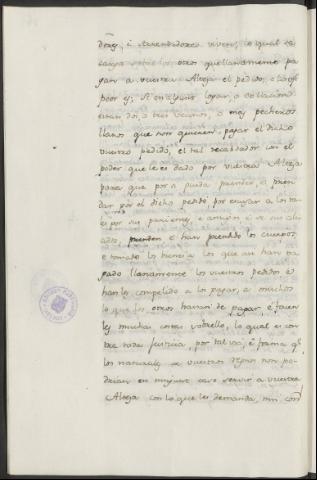 dores, i Arrendadores viven, lo qual se
carga sobre los otros que llanamente pa
gan a vuestra Alteza el pedido, e lo que
peor es, si en algun logar, o collacion
estan dos, o tres vecinos, o mas pecheros
llanos que non quieren pagar el dicho
vuestro pedido, el tal recabdador con el
poder que le es dado por vuestra Alteza
para que por si pueda prender, e pren
dar por el dicho pedido por escusar a los ta
les por sus parientes, e amigos
prenden e han prendido los cuerpos
e tomado los bienes a los que an han pa
gado llanamente los vuestros pedidos e
han les compelido a los pagar, a muchos
lo que los otros havian de pagar, e facen
les muchas costas sobrello, lo qual es con
tra toda justicia, por tal via, e forma qe
los naturales de vuestros regnos non po
drian en ninguno caso servir a vuestra
Alteza con lo que les demanda, nin con